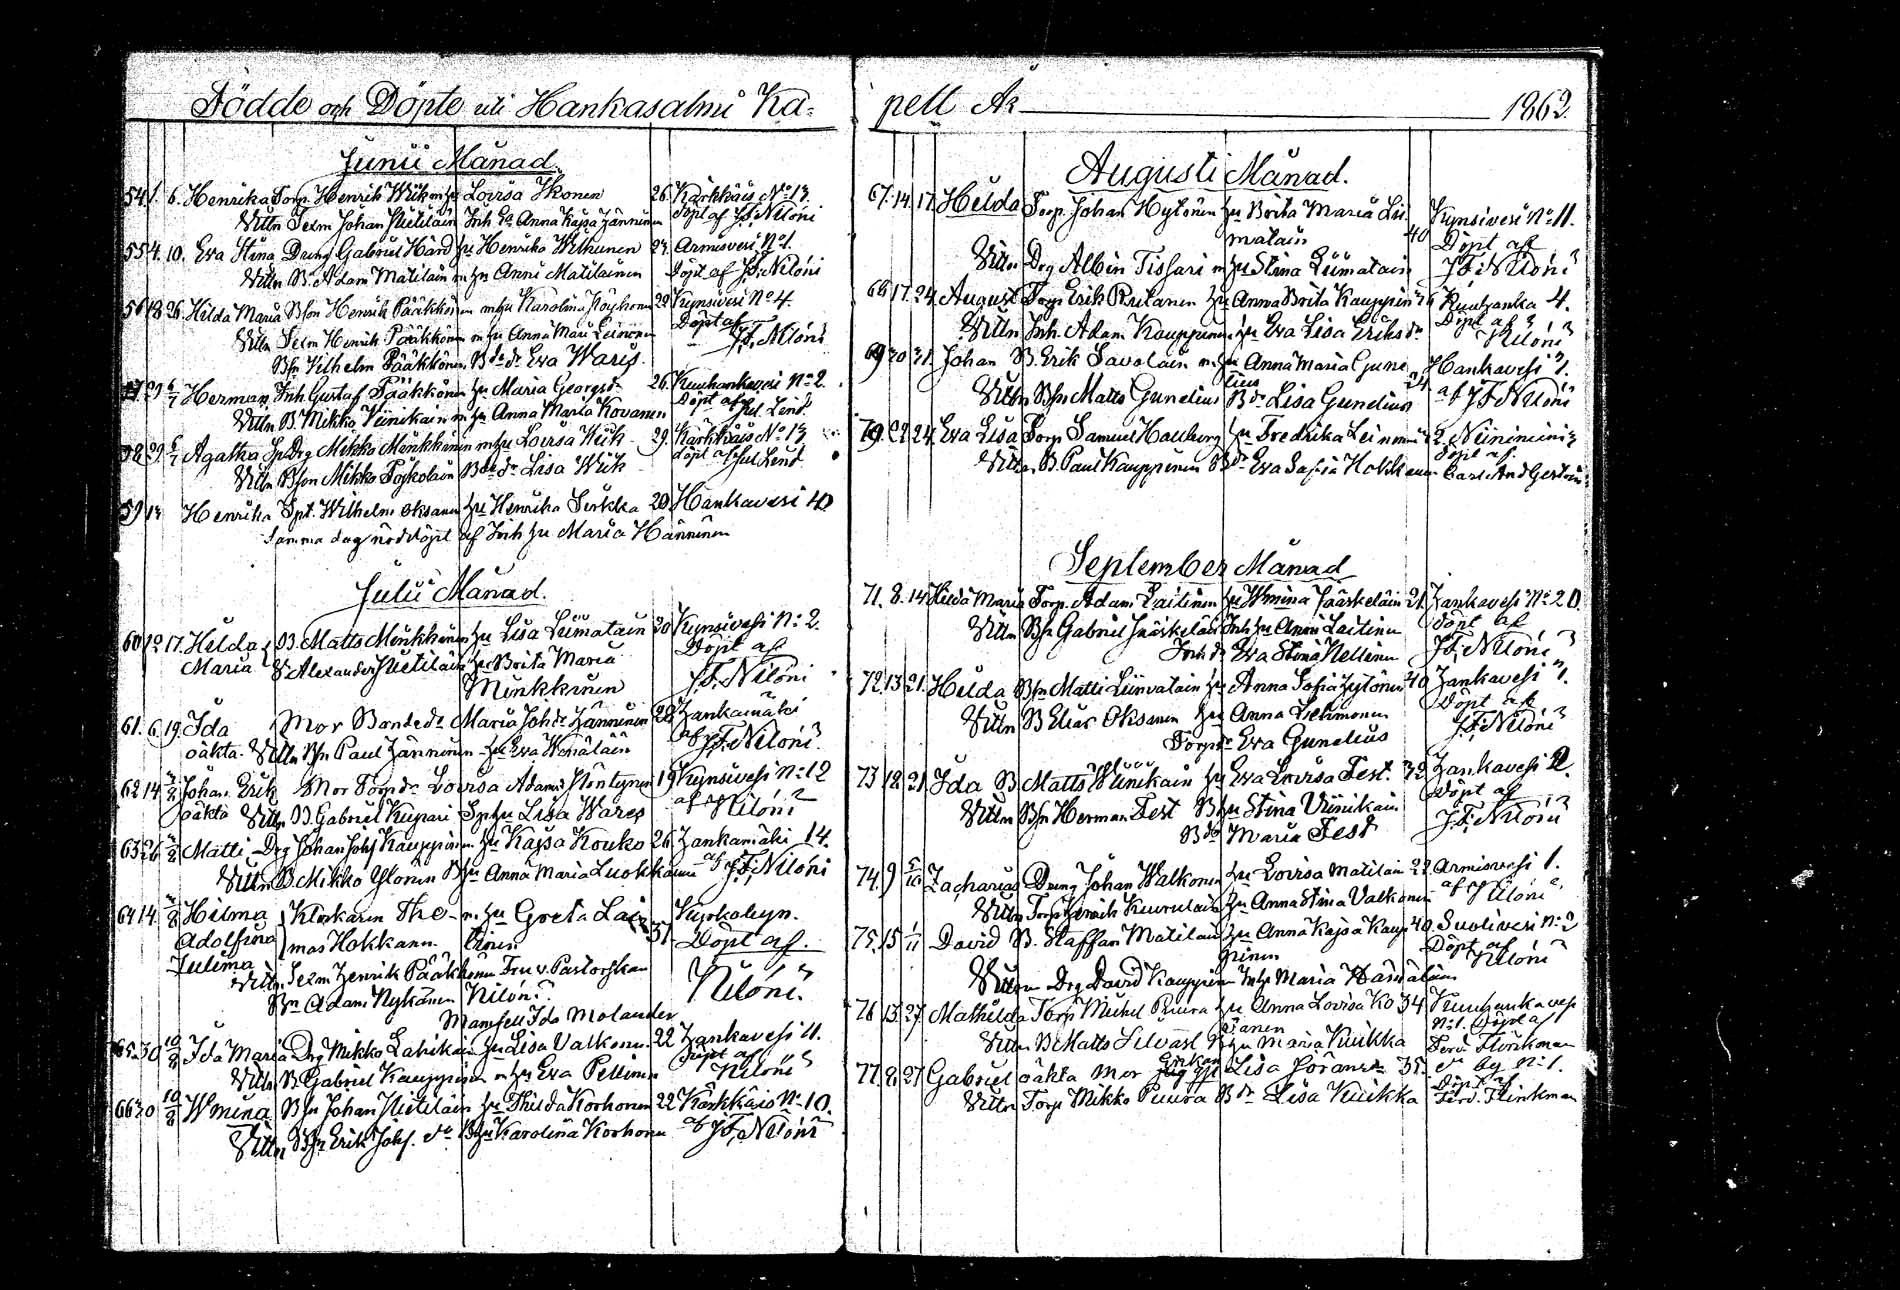 Födde och Döpte uti Hankasalmi Ka-
Junii Månad.
54. 1. 6. Henrika Torp. Henrik Wiik m hu Lovisa Ikonen 26. Kärkkäis No 13.
Vittn Sexm Johan Hietiläin Inh hu Anna Kajsa Jänninen döpt af J. F. Niloni
55 4. 10. Eva Stina Dreng Gabriel Hård hu Henrika Wilkunen 27. Armisvesi No 1.
Vittn B. Adam Matilain m hu Anni Matilainen Döpt af J. F. Niloni
56 18 26. Hilda Maria Bson Henrik Pääkkönen m hu Karolina Poyhonen 22 Kynsivesi No 4.
Vittn Sexm Henrik Pääkkönen m hu Anna Mari Leinonen Döpt af
Bsn Vilhelm Pääkkönen Bde dr Eva Waris. J. F. Niloni
29 6/7 Herman Inh Gustaf Pääkkönen hu Maria Georgsdr 26. Kuuhankavesi No 2.
Vittn B. Mikko Viinikain m hu Anna Maria Kovanen Döpt af Jul Lind
58 29 6/7 Agatha Drg Mikko Minkkinen m hu Lovisa Wiik 29. Kärkkäis No 13
Vittn Bson Mikko Poykoläin Bde dr Lisa Wiik döpt af Jul Lind
59 13 Henrika Spt. Wilhelm Oksanen hu Henrika Serkka 20. Hankavesi 40
samma dag nöddöpt af Inh hu Maria Hänninen
Julii Månad.
60 12 17. Hilda B. Matts Minkkinen hu Lisa Liimatain 20 Kynsivesi No 2.
Maria V Alexander Hietiläin hu Brita Maria Döpt af
Minkkinen J. F. Niloni
61. 6 19. Ida Mor Bondedr Maria Johdr Jänninen 28 Hankamäki
oäkta. Vittn Bsn Paul Jänninen hu Eva af J. F. Niloni
62 14 Johan Erik Mor Torp dr Lovisa Adamsd 19 Kynsivesi No 12
oäkta Vittn B. Gabriel Kupari hu Lisa Wares af Niloni
63 26 Matti Drg Johan Johs Kauppinen hu Kajsa Kouko 26 Hankamäki 14.
Vittn B. Mikko Ylönen hu Anna Maria Luokkanen af J. F. Niloni
64 14. Hilma Klockaren Tho- m. hu Greta Lai- Kyrkobyn.
Adolfina mas Hokkanen tinen 37 Döpt af.
Julima
Vittn Sexm Henrik Pääkkönen Fru v. Pastorskan Niloni.
Bsn Adam Nykänen Niloni.
Mamsell Ida Molander
65. 30 10/8 Ida Maria Drg Mikko Lahikain hu Lisa Valkonen. 22 Hankavesi 11.
Vittn B. Gabriel Kauppinen m hu Eva Pellinen Döpt af Niloni
66 30 10/8 Wmina Bsn Johan Hietiläin hu Thilda Korhonen 22 Kärkkäis No 10.
Vittn Bsn Erik Johs. do Bhu Karolina Korhonen af J. F. Niloni
pell År 1862.
Augusti Månad.
67. 14. 17. Hilda Torp. Johan Hytönen hu Brita Maria Lii- Kynsivesi No 11.
matain 40 Döpt af
Vittn Drg Albin Tissari m hu Stina Liimatain J. F. Niloni
68 17. 24. August Torp Erik Rutanen hu Anna Brita Kauppin Kuuhanka 4.
Vittn Inh. Adam Kauppinen hu Eva Lisa Eriksdr Döpt af Niloni
69 30 31. Johan B. Erik Savolain m hu Anna Maria Gune- Hankavesi 1.
lius 24
Vittn Bsn Matts Gunelius Bdr Lisa Gunelius af J. F. Niloni
70. 22 24. Eva Lisa Torp Samuel Hauborg hu Fredrika Leinonen Niinimini
Vittn B. Paul Kauppinen Bdr Eva Sofia Hokkanen Döpt af Carl And
September Månad
71. 8. 14 Hilda Maria Torp. Adam Laitinen hu Wmina Jääskeläin 21. Hankavesi No 20.
Vittn Bsn Gabriel Jääskeläin Inh hu Anni Laitinen Döpt af
Inh dr Eva Stina Nellinen J. F. Niloni
72. 13 21. Hilda Bsn Matti Liinvatain hu Anna Sofia Hytönen 40 Hankavesi 1.
Vittn B Elias Oksanen hu Anna Döpt af
Torp dr Eva Gunelius J. F. Niloni
73 18. 21. Ida B Matts Wiinikain hu Eva Lovisa Fest. 32 Hankavesi 2.
Vittn Bsn Herman Fest Bhu Stina Viinikain Döpt af
Bdr Maria Fest J. F. Niloni
74. 9 5/10 Zacharias Dreng Johan Walkonen hu Lovisa Matilain 22 Armisvesi 1.
Vittn Torp Henrik hu Anna Stina Valkonen af Niloni
75. 15 1/11 David B. Staffan Matilain hu Anna Kajsa Kaup- 40. Suolivesi No 2
pinen Döpt af
Vittn Drg David Kauppinen Inh Maria Niloni
76 13 27. Mathilda Torp Mickel Puura hu Anna Lovisa Ko- 34 Kuuhankavesi
sanen No 1. Döpt af
Vittn B Matts Silvast hu Maria Kuikka Ferd. Flinkman
77. 8. 27 Gabriel oäkta Mor Enkan Lisa Göransdr 35. do by No 1.
Vittn Torp Mikko Puura Bdr Lisa Kuikka Döpt af Ferd. Flinkman